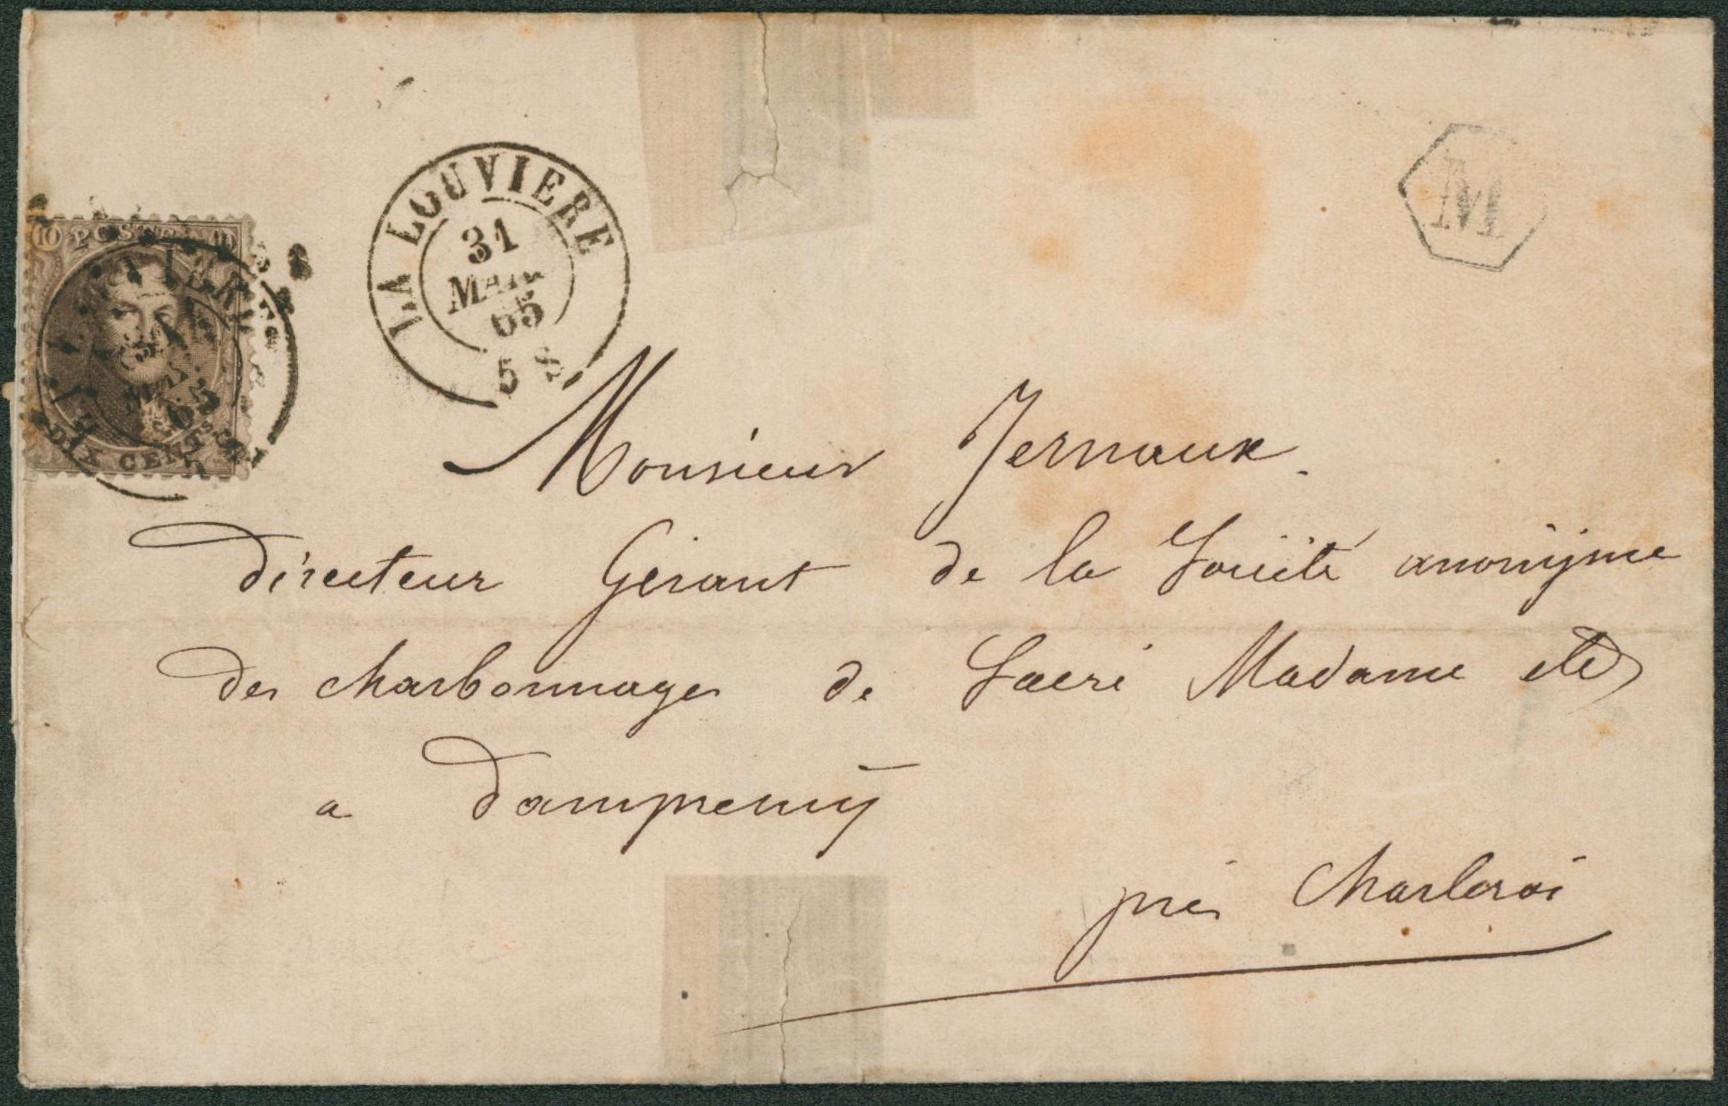 LA LOUVIERE
31
MARS
65
5 S
M
10 POSTES 10
DIX CENTS
31
65
Monsieur Jernaux.
directeur Gérant de la Société anonÿme
des charbonnages de Sacré Madame etc
a dampremÿ
près Charleroi